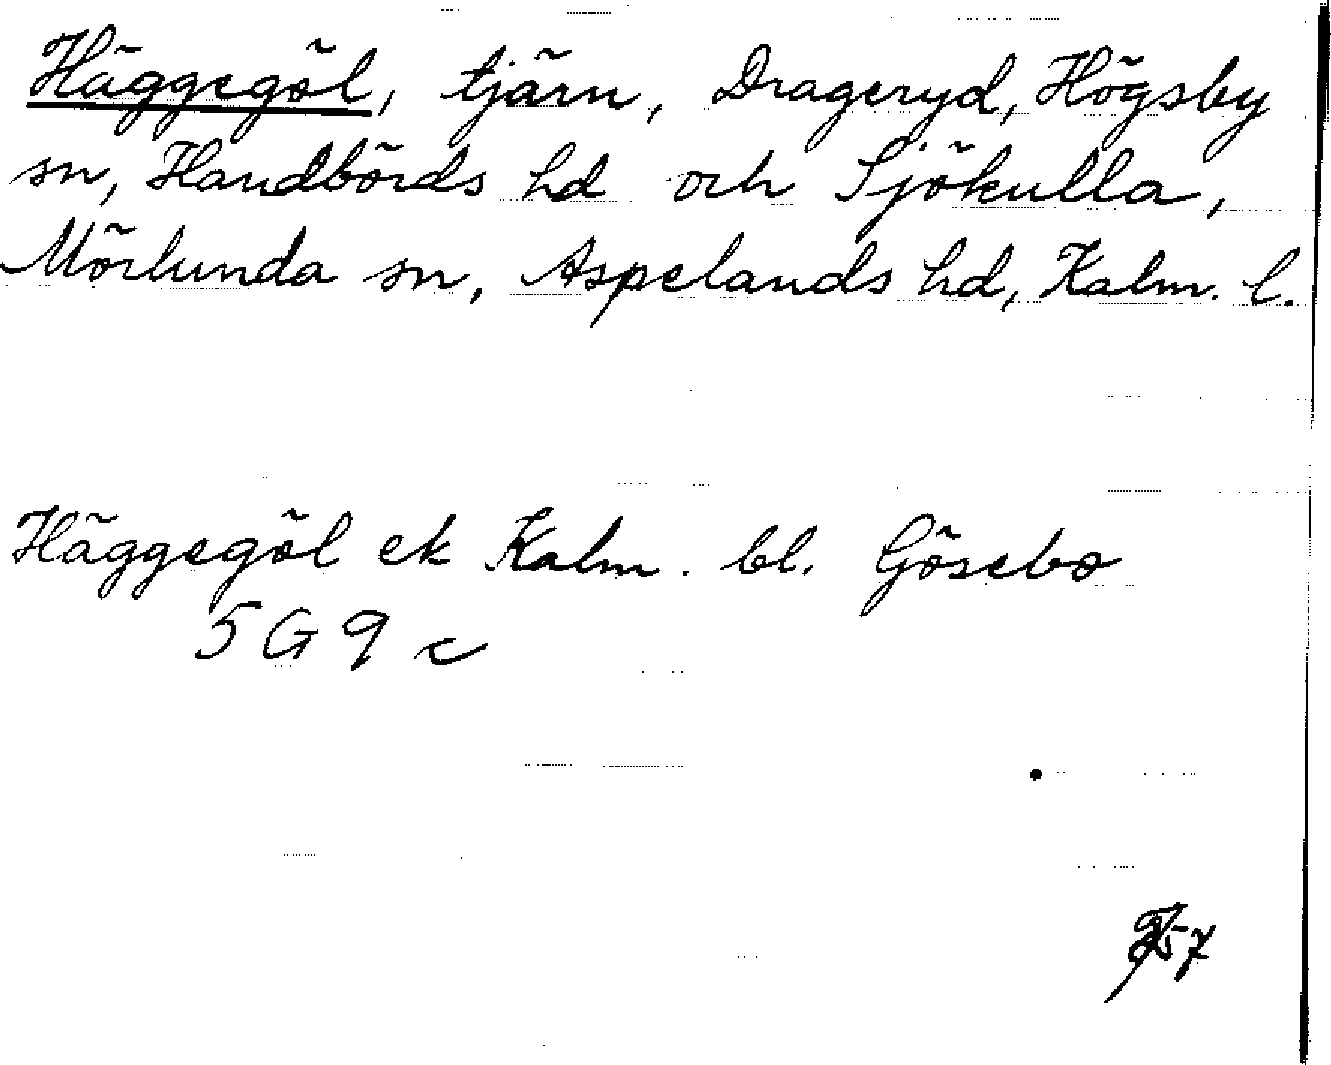 Häggegöl, tjärn, Drageryd, Högsby
sn, Handbörds hd och Sjökulla,
Mörlunda sn, Aspelands hd, Kalm. l.
Häggegöl ek Kalm. bl. Gösebo
5 G 9 c